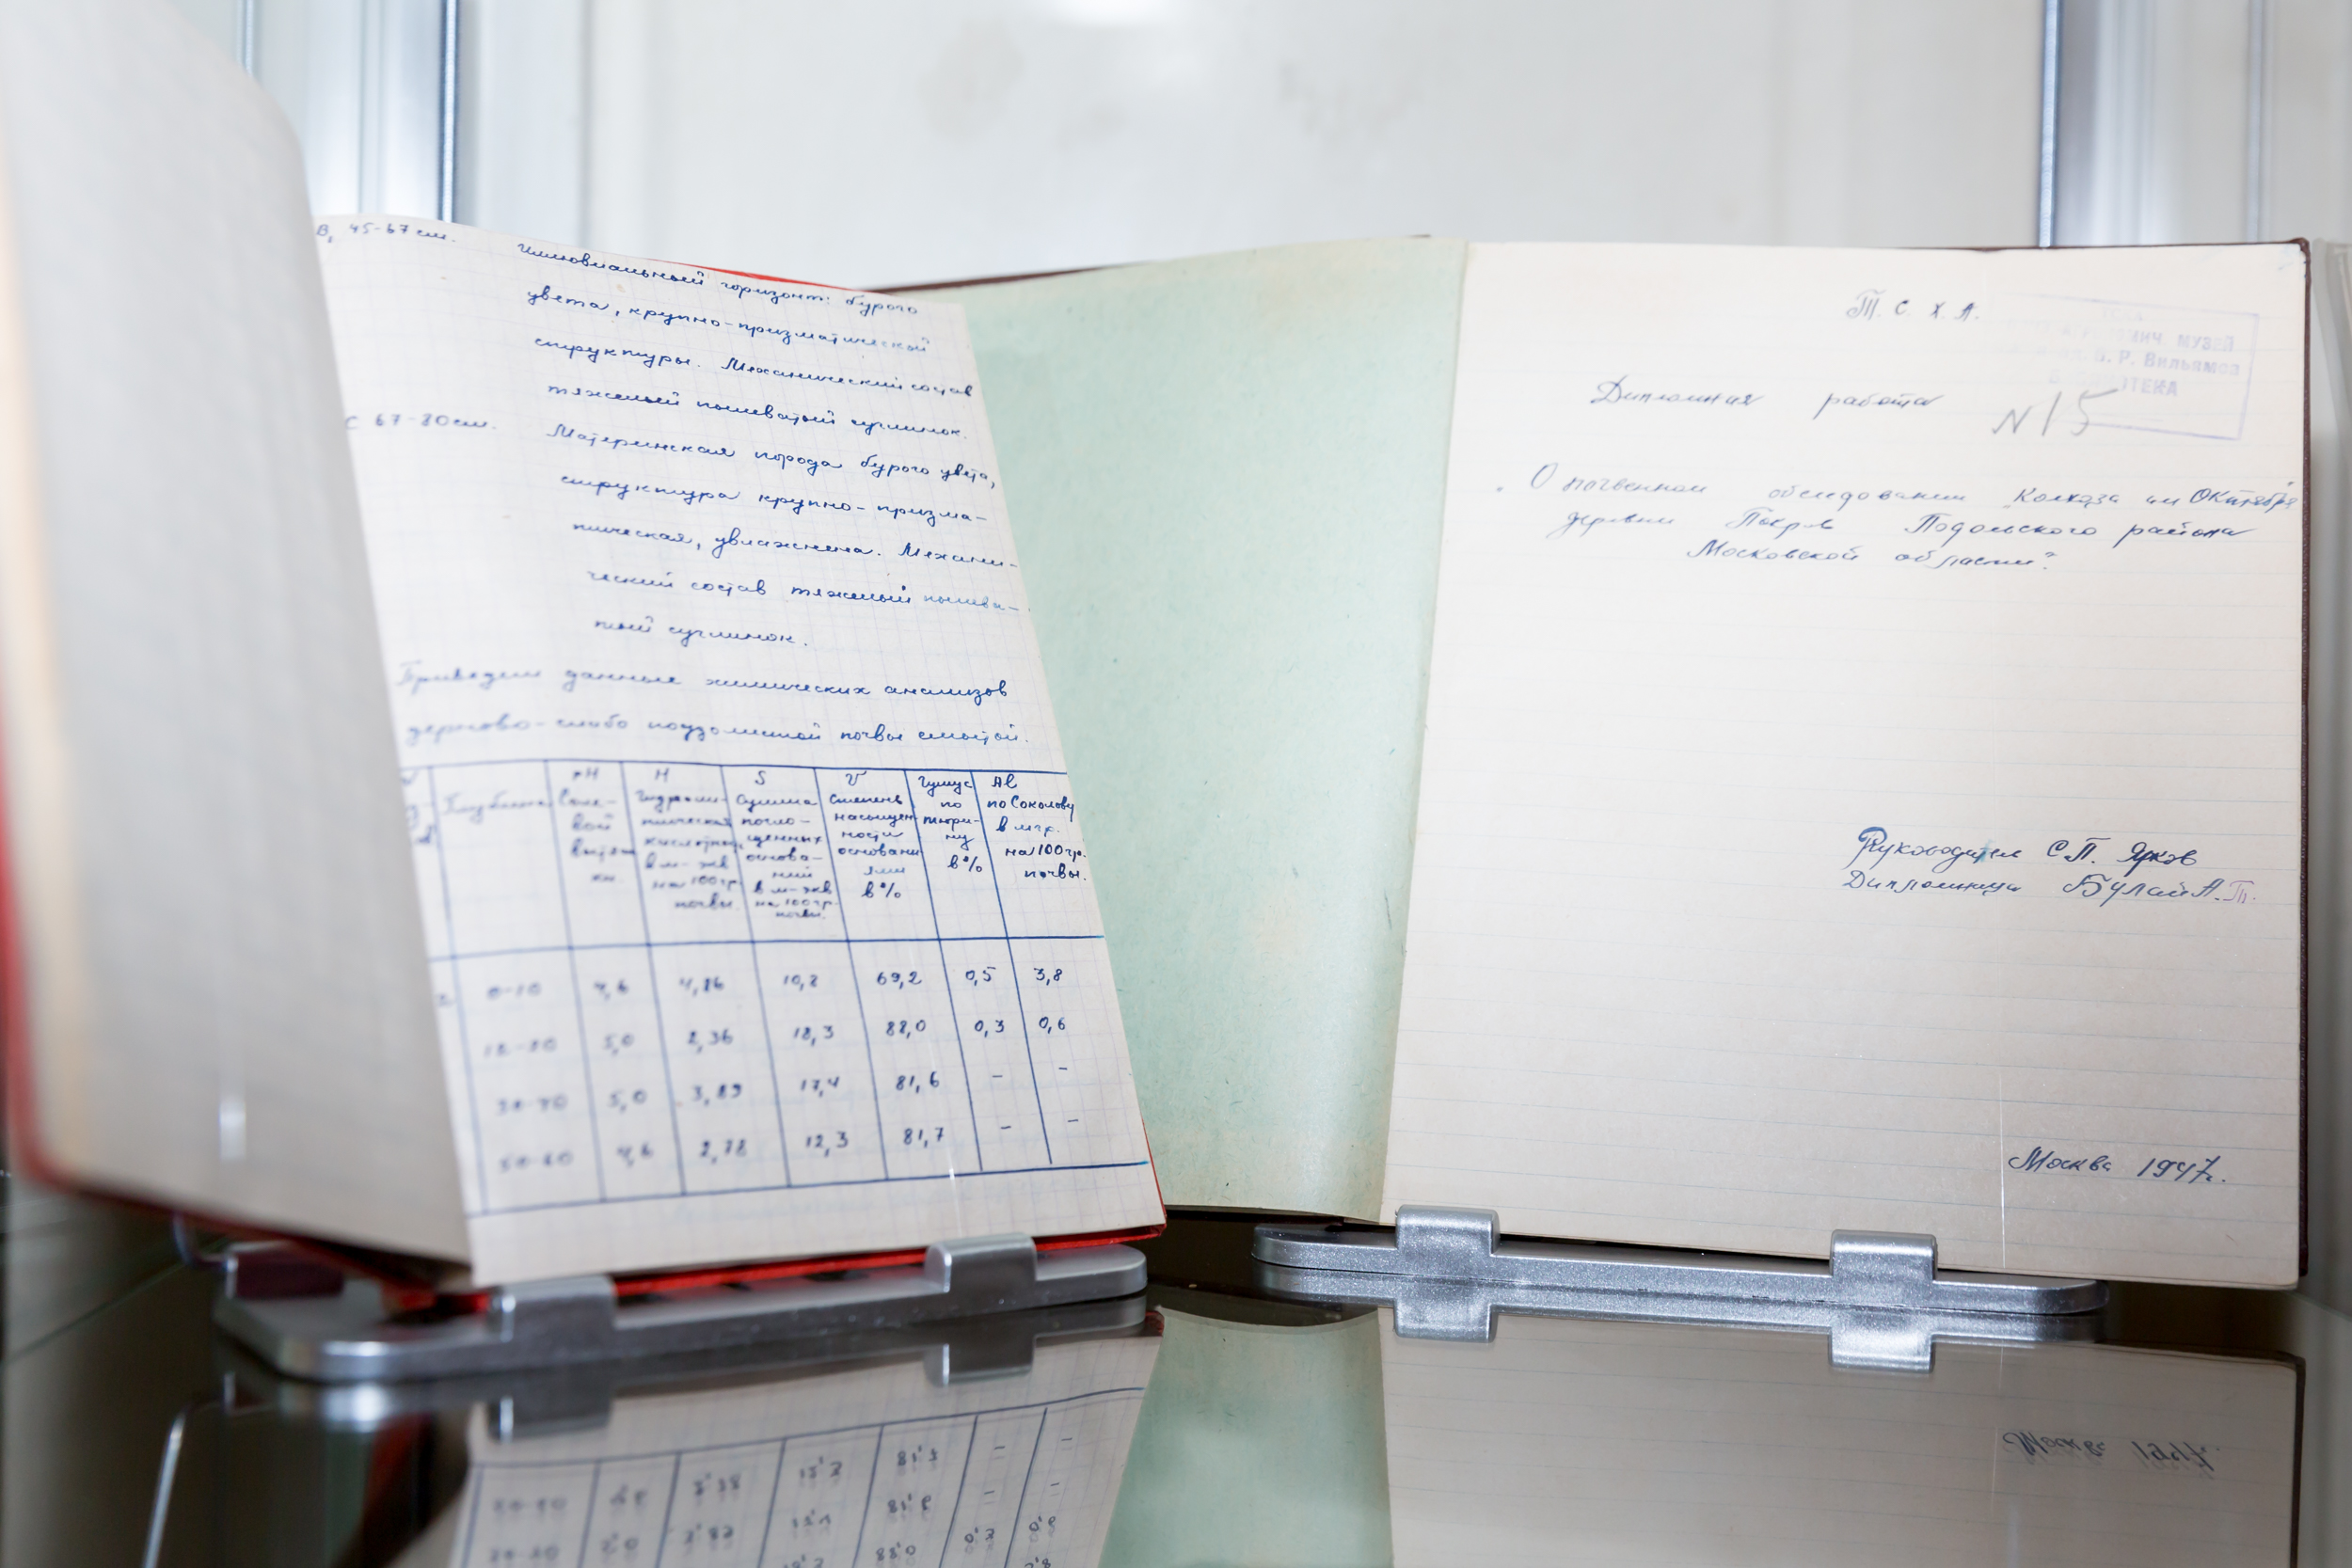 В₁ 45-67 см. Иллювиальный горизонт: бурого
цвета, крупно-призматической
структуры. Механический состав
тяжелый пылеватый суглинок.
С 67-80 см. Материнская порода бурого цвета,
структура крупно-призма-
тическая, увлажнена. Механи-
ческий состав тяжелый пылева-
тый суглинок.
Приведем данные химических анализов
дерново-слабо подзолистой почвы смытой.
Глубина
рН Соле-
вой
вытяж
ки.
Н Гидроли-
тическая
кислотность
в м-экв
на 100 гр
почвы.
S Сумма
погло-
щенных
основа-
ний
в м-экв
на 100 гр.
почвы.
V Степень
насыщен-
ности
основани
ями
в %
Гумус
по
Тюри-
ну
в %
Al
по Соколову
в мгр.
на 100 гр.
почвы.
0-10 4,6 4,86 10,2 69,2 0,5 3,8
5,0 2,36 18,3 88,0 0,3 0,6
5,0 3,89 17,4 81,6 - -
50-60 4,6 2,78 12,3 81,7 - -
Т. С. Х. А.
МУЗЕЙ
В. Р. Вильямса
БИБЛИОТЕКА
Дипломная работа
N 15
"О почвенном обследовании Колхоза им Октября
деревни Покров Подольского района
Московской области"
Руководител С П. Ярков
Дипломница Булай А. Т.
Москва 1947г.